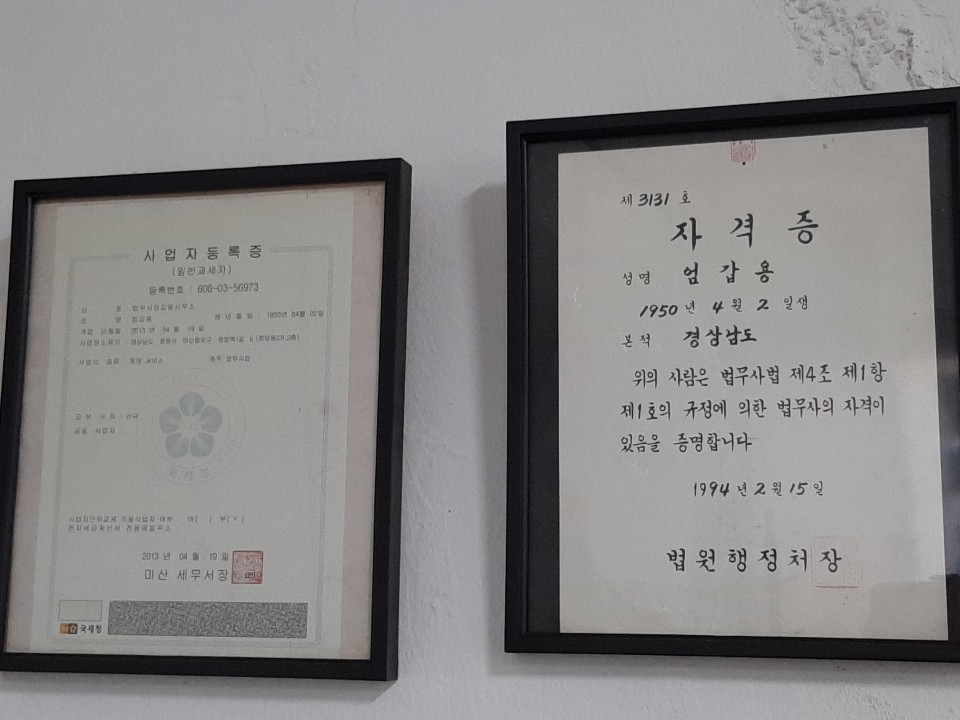 사업자등록증
(일반과세자)
등록번호 : 608-03-50973
상 호 : 법무사엄갑용사무소
성 명 : 엄갑용 생 년 월 일 : 1950년 04월 02일
개 업 년 월 일 : 2013 년 04 월 19 일
사업장 소재지 : 경상남도 창원시 마산합포구
사업의 종류 : 업태 서비스 종목 법무사업
교 부 사 유 : 신규
공동 사업자
사업자단위과세 적용사업자 여부 : 여( ) 부(
2013 년 04 월 19 일
마산 세무서장
국세청
제 3131 호
자격증
성명 엄갑용
1950 년 4 월 2 일생
본적 경상남도
위의 사람은 법무사법 제4조 제1항
제1호의 규정에 의한 법무사의 자격이
있음을 증명합니다
1994 년 2 월 15 일
법원행정처장